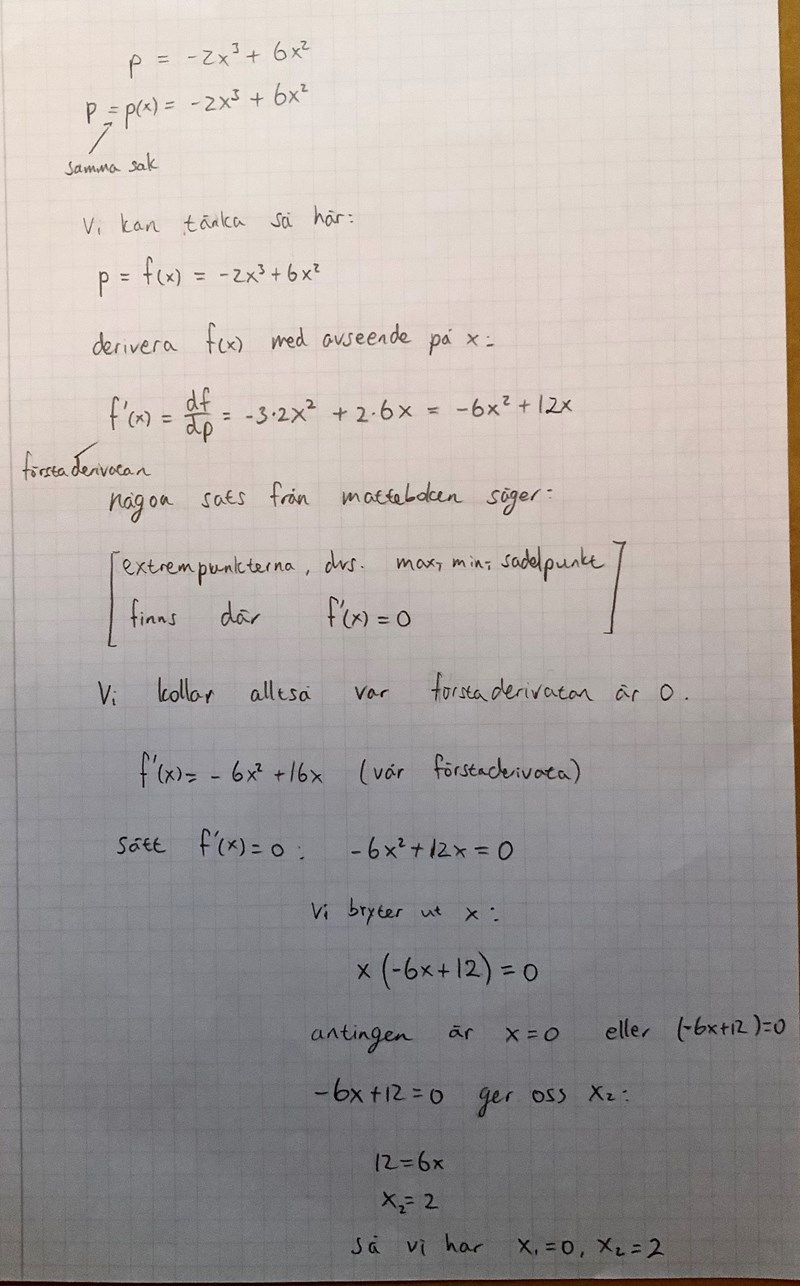 p = -2x³ + 6x²
p = p(x) = -2x³ + 6x²
samma sak
Vi kan tänka så här:
p = f(x) = -2x³ + 6x²
derivera f(x) med avseende på x:
f'(x) = df/dp = -3·2x² + 2·6x = -6x² + 12x
förstaderivatan
någon sats från matteboken säger:
[extrempunkterna, dvs. max, min, sadelpunkt
finns där f'(x) = 0]
Vi kollar alltså var förstaderivatan är 0.
f'(x) = -6x² + 16x (vår förstaderivata)
Sätt f'(x) = 0: -6x² + 12x = 0
Vi bryter ut x:
x(-6x+12) = 0
antingen är x = 0 eller (-6x+12) = 0
-6x+12 = 0 ger oss x₂:
12 = 6x
x₂ = 2
Så vi har x₁ = 0, x₂ = 2